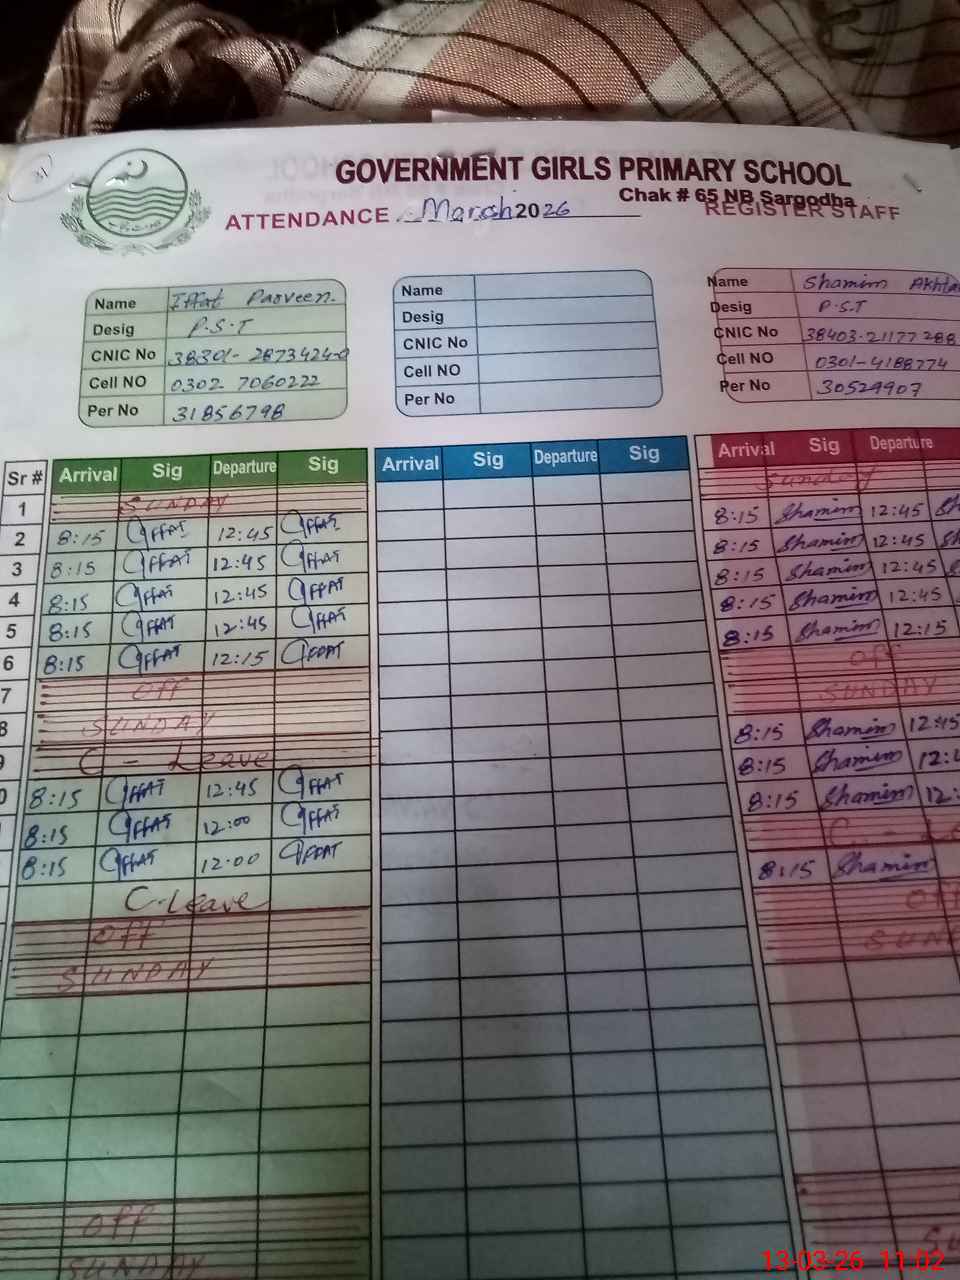 GOVERNMENT GIRLS PRIMARY SCHOOL
Chak # 65 NB Sargodha
ATTENDANCE March 2026 REGISTER STAFF
Name Iffat Parveen.
Desig P.S.T
CNIC No 38301-2873424-0
Cell NO 0302 7060222
Per No 31856798
Name
Desig
CNIC No
Cell NO
Per No
Name Shamim Akhta
Desig P.S.T
CNIC No 38403-21177288
Cell NO 0301-4188774
Per No 30529907
Sr # Arrival Sig Departure Sig Arrival Sig Departure Sig Arrival Sig Departure
1 SUNDAY Sunday
2 8:15 Iffat 12:45 Iffat 8:15 Shamim 12:45 Sh
3 8:15 Iffat 12:45 Iffat 8:15 Shamim 12:45 Sh
4 8:15 Iffat 12:45 Iffat 8:15 Shamim 12:45
5 8:15 Iffat 12:45 Iffat 8:15 Shamim 12:45
6 8:15 Iffat 12:15 Iffat 8:15 Shamim 12:15
7 Off Off
8 SUNDAY SUNDAY
9 C - Leave 8:15 Shamim 12:45
0 8:15 Iffat 12:45 Iffat 8:15 Shamim 12:4
8:15 Iffat 12:00 Iffat 8:15 Shamim 12:
8:15 Iffat 12:00 Iffat C - Le
C-Leave 8:15 Shamim
Off Off
SUNDAY SUND
Off
SUNDAY Su
13-03-26 11:02